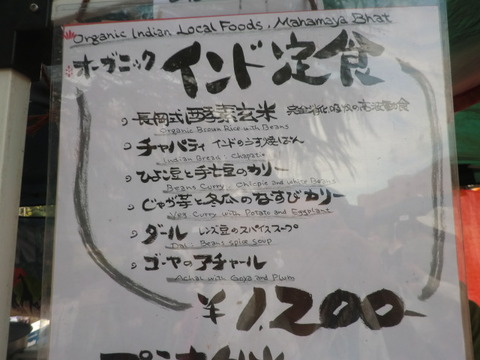 Organic Indian Local Foods, Mahamaya Bhat
オーガニック インド定食
長岡式酵素玄米
Organic Brown Rice with Beans
チャパティ インドのうす焼ぱん
Indian Bread : Chapatie
ひよこ豆と手亡豆のカリー
Beans Curry : Chicpie and White Beans
じゃが芋と冬瓜のなすびカリー
Veg. Curry with Potato and Eggplant
ダール レンズ豆のスパイススープ
Dal : Beans spice soup
ゴーヤのアチャール
Achar with Goya and Plum
¥1,200-